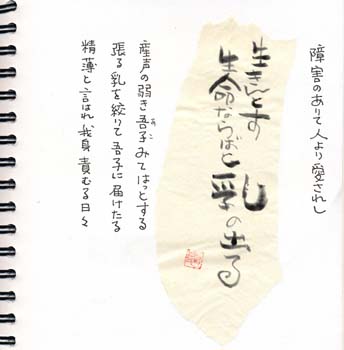 障害のありて人より愛されし
生きんとす
生命ならばと乳の出る
産声の弱き吾子みてはっとする
あこ
張る乳を絞りて吾子に届けたる
精薄と言はれ我身責むる日々